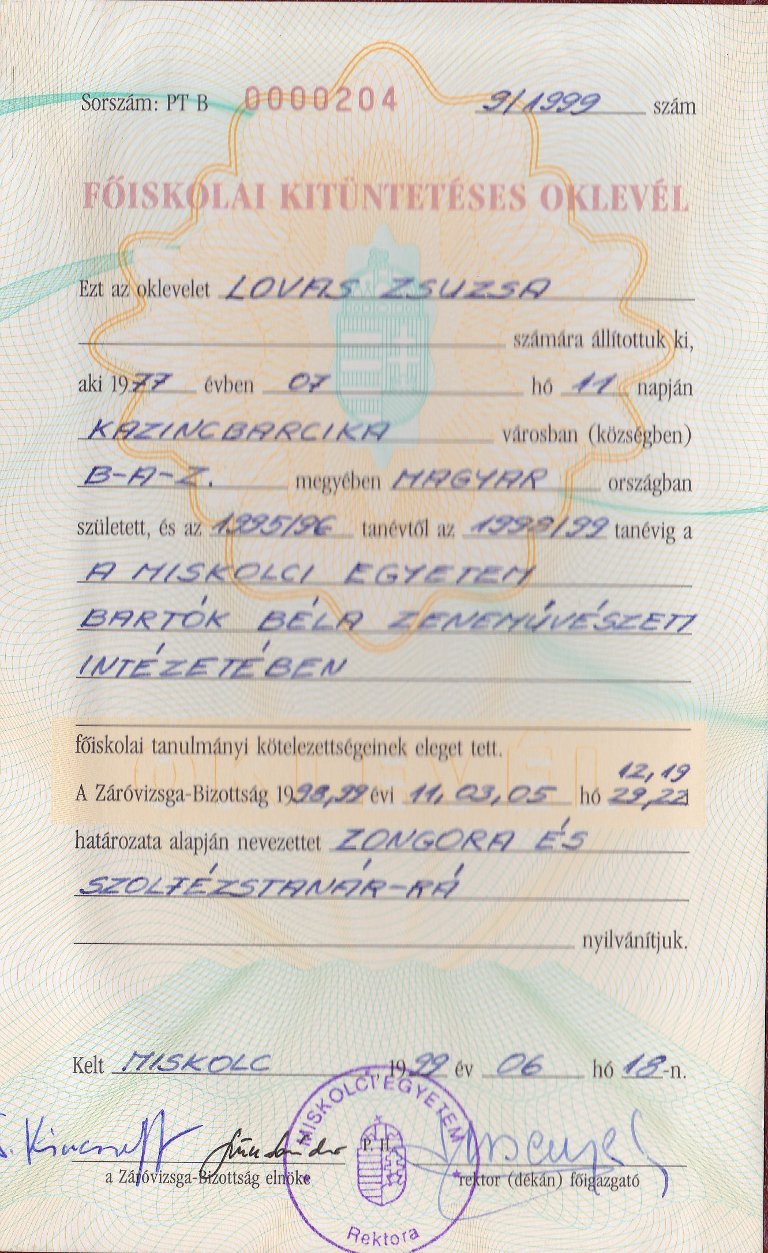 Sorszám: PT B 0000204 9/1999 szám
FŐISKOLAI KITÜNTETÉSES OKLEVÉL
Ezt az oklevelet LOVAS ZSUZSA
számára állítottuk ki,
aki 1977 évben 07 hó 11 napján
KAZINCBARCIKA városban (községben)
B-A-Z. megyében MAGYAR országban
született, és az 1995/96 tanévtől az 1998/99 tanévig a
A MISKOLCI EGYETEM
BARTÓK BÉLA ZENEMŰVÉSZETI
INTÉZETÉBEN
főiskolai tanulmányi kötelezettségeinek eleget tett.
12, 19
A Záróvizsga-Bizottság 1998,99 évi 11, 03, 05 hó 29,22
határozata alapján nevezettet ZONGORA ÉS
SZOLFÉZSTANÁR-RÁ
nyilvánítjuk.
Kelt MISKOLC, 1999 év 06 hó 18-n.
MISKOLCI EGYETEM
P. H.
a Záróvizsga-Bizottság elnöke rektor (dékán) főigazgató
Rektora